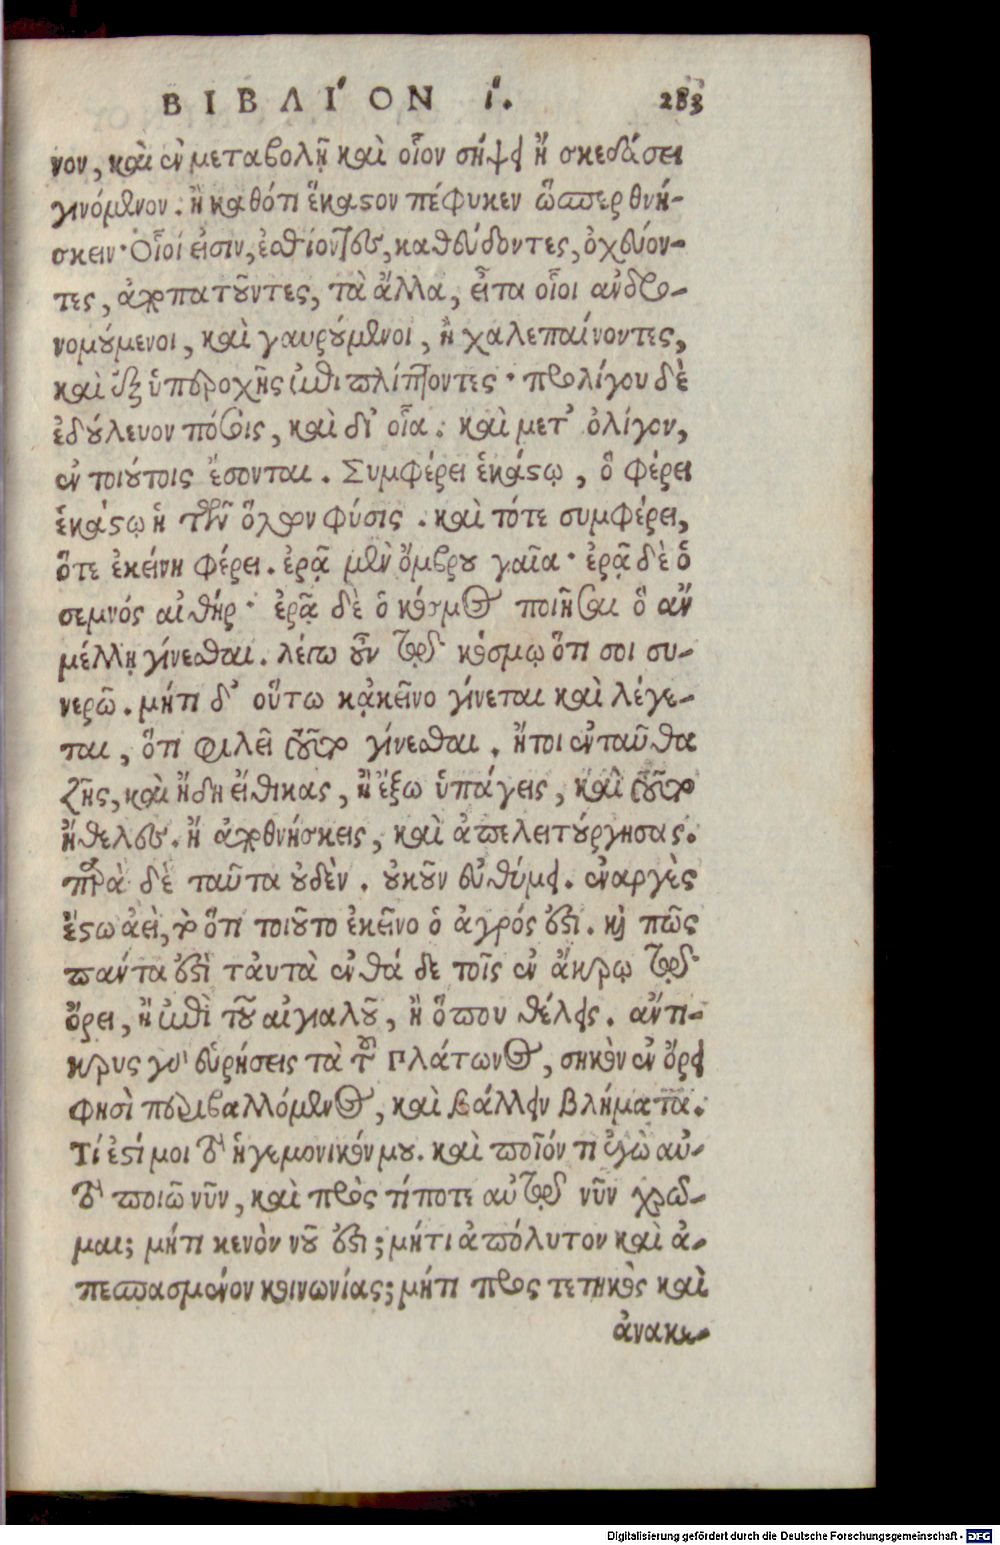 ΒΙΒΛΊΟΝ ί. 283
νον, καὶ ἐν μεταβολῇ καὶ οἷον σήψει ἢ σκεδάσει
γινόμενον. ἢ καθότι ἕκαστον πέφυκεν ὥσπερ θνή-
σκειν· Οἷοί εἰσιν, ἐσθίοντες, καθεύδοντες, ὀχεύον-
τες, ἀποπατοῦντες, τὰ ἄλλα, εἶτα οἷοι ἀνδρο-
νομούμενοι, καὶ γαυρούμενοι, ἢ χαλεπαίνοντες,
καὶ ἐξ ὑπεροχῆς ἐπιπλήττοντες· πρὸ λίγου δὲ
ἐδούλευον πόσοις, καὶ δι' οἷα. καὶ μετ' ὀλίγον,
ἐν τοιούτοις ἔσονται. Συμφέρει ἑκάστῳ, ὃ φέρει
ἑκάστῳ ἡ τῶν ὅλων φύσις. καὶ τότε συμφέρει,
ὅτε ἐκείνη φέρει. ἐρᾷ μὲν ὄμβρου γαῖα· ἐρᾷ δὲ ὁ
σεμνός αἰθήρ· ἐρᾷ δὲ ὁ κόσμος ποιῆσαι ὃ ἂν
μέλλῃ γίνεσθαι. λέγω οὖν τῷ κόσμῳ ὅτι σοι συ-
νερῶ. μήτι δ' οὕτω κᾀκεῖνο γίνεται καὶ λέγε-
ται, ὅτι φιλεῖ τοῦτο γίνεσθαι. ἤτοι ἐνταῦθα
ζῆς, καὶ ἤδη εἴθικας, ἢ ἔξω ὑπάγεις, καὶ τοῦτο
ἤθελες. ἢ ἀποθνήσκεις, καὶ ἀπελειτούργησας.
παρὰ δὲ ταῦτα οὐδὲν. οὐκοῦν εὐθύμει. ἐναργὲς
ἔστω ἀεὶ, τὸ ὅτι τοιοῦτο ἐκεῖνο ὁ ἀγρός ἐστι. καὶ πῶς
πάντα ἐστὶ ταὐτὰ ἐνθά δε τοῖς ἐν ἄκρῳ τῷ
ὄρει, ἢ ἐπὶ τοῦ αἰγιαλοῦ, ἢ ὅπου θέλεις. ἄντι-
κρυς γὰρ εὑρήσεις τὰ τοῦ Πλάτωνος, σηκὸν ἐν ὄρει
φησὶ περιβαλλόμενος, καὶ βάλλειν βλήματα.
Τί ἐστί μοι τὸ ἡγεμονικόν μου. καὶ ποῖόν τι ἐγὼ αὐ-
τὸ ποιῶ νῦν, καὶ πρὸς τίποτε αὐτῷ νῦν χρῶ-
μαι; μήτι κενὸν νοῦ ἐστι; μήτι ἀπόλυτον καὶ ἀ-
πεσπασμένον κοινωνίας; μήτι προς τετηκὸς καὶ
ἀνακε-
Digitalisierung gefördert durch die Deutsche Forschungsgemeinschaft - DFG